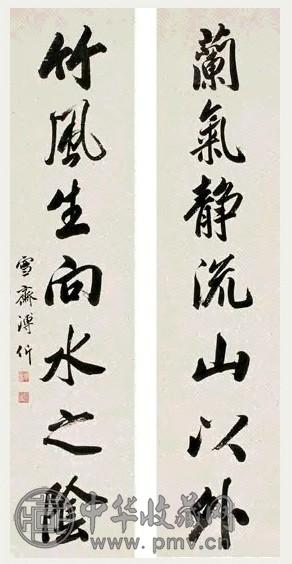 蘭氣静流山以外
竹風生向水之陰
雪齋溥伒
中华收藏网
www.pmv.cn